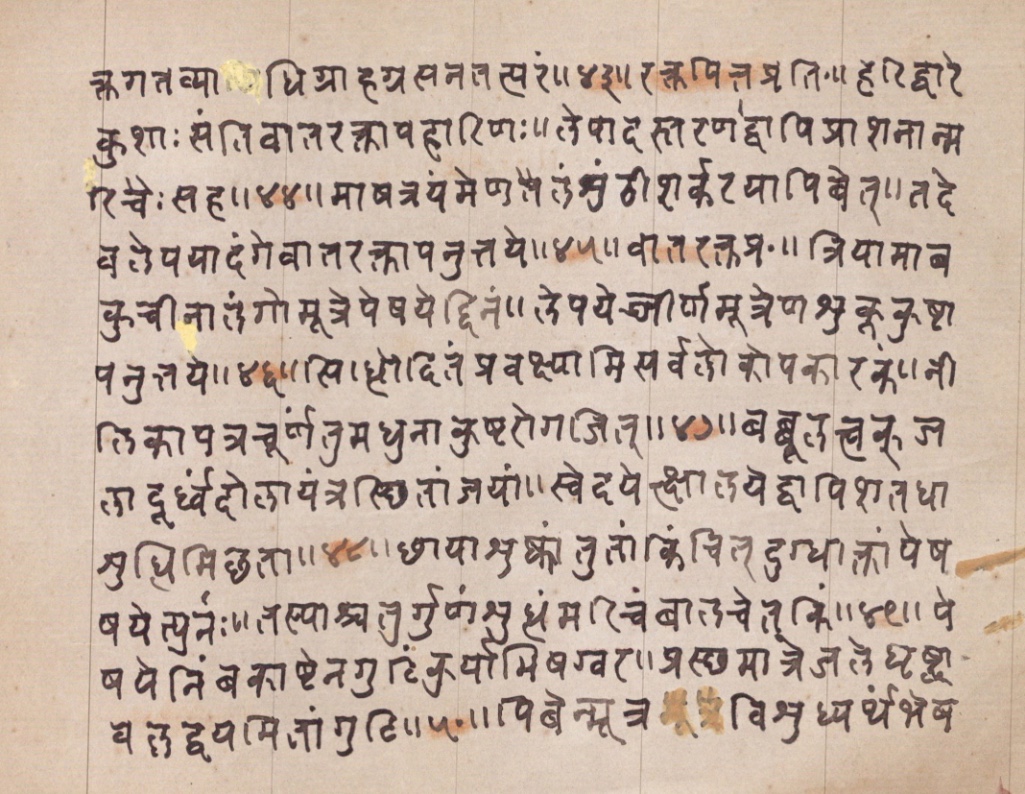 क्तगतव्या धिग्राहग्रसनतत्परं॥४३॥रक्तपित्तप्रति॰॥हरिद्वारे
कुशाः संतिवातरक्तापहारिणः॥लेपादस्तरणाद्वापिप्राशनान्म
रिचैःसह॥४४॥माषत्रयंमेणतैलंशुंठीशर्करयापिबेत्॥तदे
वलेपयादंगेवातरक्तापनुत्तये॥४५॥वातरक्तप्र॰॥त्रियामाब
कुचीनालंगोमूत्रेपेषयेद्दिनं॥लेपयेज्जीर्णमूत्रेणशुक्लकुष्टा
पनुत्तये॥४६॥सिध्मोदितंप्रवक्ष्यामिसर्वलोकोपकारकं॥नी
लिकापत्रचूर्णंतुमधुनाकुष्टरोगजित्॥४७॥बब्बूलत्वक्ज
लादूर्ध्वंदोलायंत्रस्छितांजयां॥स्वेदयेत्क्षालयेद्वापिशतधा
शुधिमिछता॥४८॥छायाशुष्कांतुतांकिंचित्दुग्धाक्तांपेष
षयेत्पुनः॥तस्याश्चतुर्गुणंशुधंमरिचंबालचेत्किं॥४९॥पे
षयेनिंबकाष्टेनगुटिंकुर्याभिषग्वर॥प्रस्छमात्रेजलेघृष्ट्वा
वलद्वयमितांगुटि॥५०॥पिबेन्मूत्र विशुध्यर्थंभेष